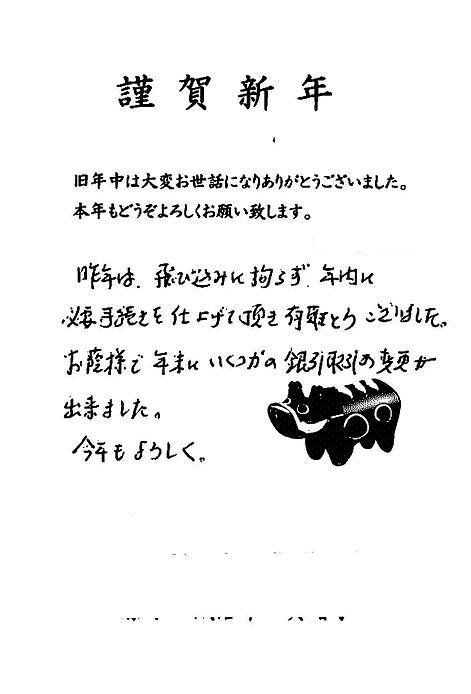 謹賀新年
旧年中は大変お世話になりありがとうございました。
本年もどうぞよろしくお願い致します。
昨年は、飛び込みに拘らず、年内に
必要手続きを仕上げて頂き有難とうございました。
お蔭様で年末にいくつかの銀行取引の変更が
出来ました。
今年もよろしく。